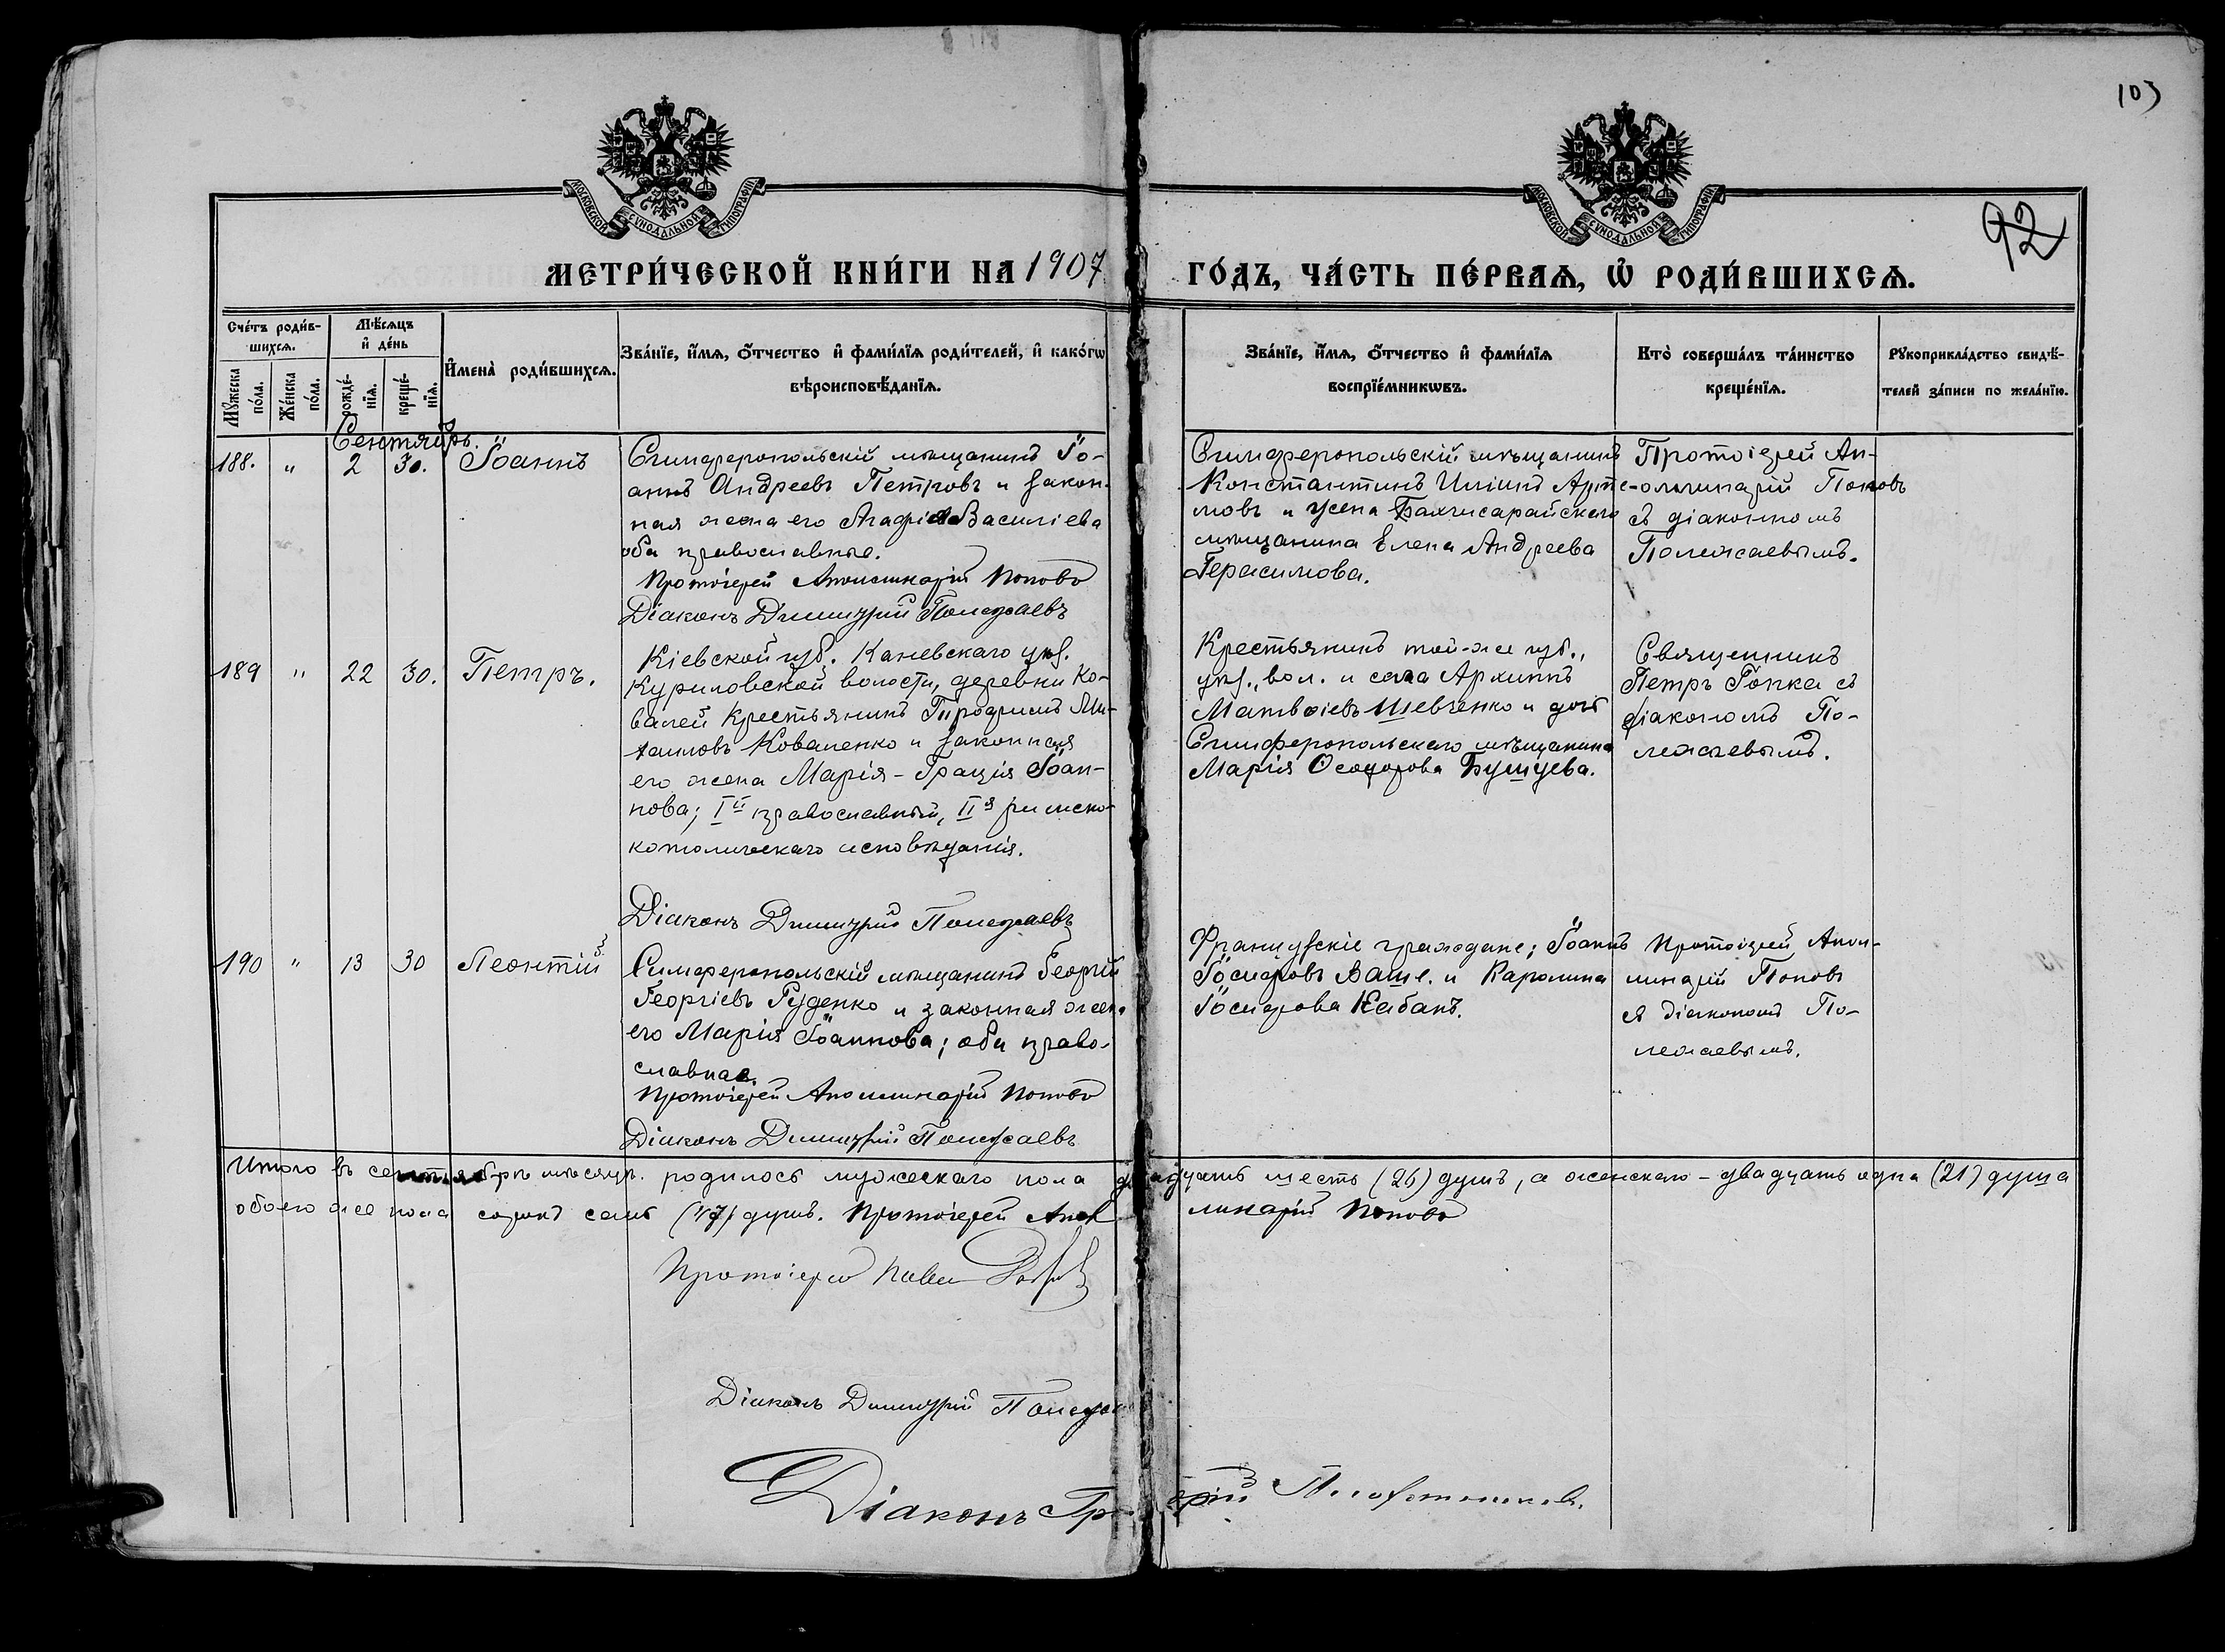 103
92
МОСКОВСКОЙ СУНОДАЛЬНОЙ ТИПОГРАФІИ
МОСКОВСКОЙ СУНОДАЛЬНОЙ ТИПОГРАФІИ
МЕТРИ́ЧЕСКОЙ КНИ́ГИ НА 1907
ГО́ДЪ, ЧА́СТЬ ПЕ́РВАѦ, Ѡ҆ РОДИ́ВШИХСѦ.
Сче́тъ роди́в-
шихсѧ.
Мꙋ́жеска по́ла.
Же́нска по́ла.
Мѣ́сѧцъ
и҆ де́нь
рожде́-нїѧ.
креще́-нїѧ.
И҆мена̀ роди́вшихсѧ.
Зва́нїе, и҆́мѧ, ѻ҆́тчество и҆ фами́лїѧ роди́телей, и҆ како́гѡ
вѣроисповѣ́данїѧ.
Зва́нїе, и҆́мѧ, ѻ҆́тчество и҆ фами́лїѧ
воспрїе́мникѡвъ.
Кто̀ соверша́лъ та́инство
креще́нїѧ.
Рꙋкоприкла́дство свидѣ́-
телей за́писи по жела́нїю.
Сентябрь.
188. " 2 30. Іоаннъ
Симферопольскій мѣщанинъ Іо-
аннъ Андреевъ Петровъ и закон-
ная жена его Агафія Василіева
оба православные.
Протоіерей Аполлинарій Поповъ
Діаконъ Димитрій Полежаевъ
Симферопольскій мѣщанинъ
Константинъ Иліинъ Арте-
мовъ и жена Бахчисарайскаго
мѣщанина Елена Андреева
Герасимова.
Протоіерей Ап-
оллинарій Поповъ
съ діакономъ
Полежаевымъ.
189 " 22 30. Петръ.
Кіевской губ. Каневскаго уѣз.
Куриловской волости, деревни Ко-
валей крестьянинъ Трофимъ Ми-
хаиловъ Коваленко и законная
его жена Марія-Грація Іоан-
нова; Iй православный, IIя римско-
католическаго исповѣданія.
Діаконъ Димитрій Полежаевъ
Крестьянинъ той-же губ.,
уѣз., вол. и села Архиппъ
Матвѣевъ Шевченко и дочь
Симферопольскаго мѣщанина
Марія Ѳеодорова Бушуева.
Священникъ
Петръ Гопка съ
діакономъ По-
лежаевымъ.
190 " 13 30 Леонтій
Симферопольскій мѣщанинъ Георгій
Георгіевъ Руденко и законная жена
его Марія Іоаннова; оба право-
славные.
Протоіерей Аполлинарій Поповъ
Діаконъ Димитрій Полежаевъ
Французскіе граждане; Іоаннъ
Іосифовъ Ваше. и Каролина
Іосифова Кабанъ.
Протоіерей Апол-
линарій Поповъ
съ діакономъ По-
лежаевымъ.
Итого въ сентябрѣ мѣсяцѣ родилось мужескаго пола двадцать шесть (26) душъ, а женскаго - двадцать одна (21) душа
обоего же пола сорокъ семь (47) душъ. Протоіерей Аполлинарій Поповъ
Протоіерей
Діаконъ Димитрій Полежаевъ
Діаконъ